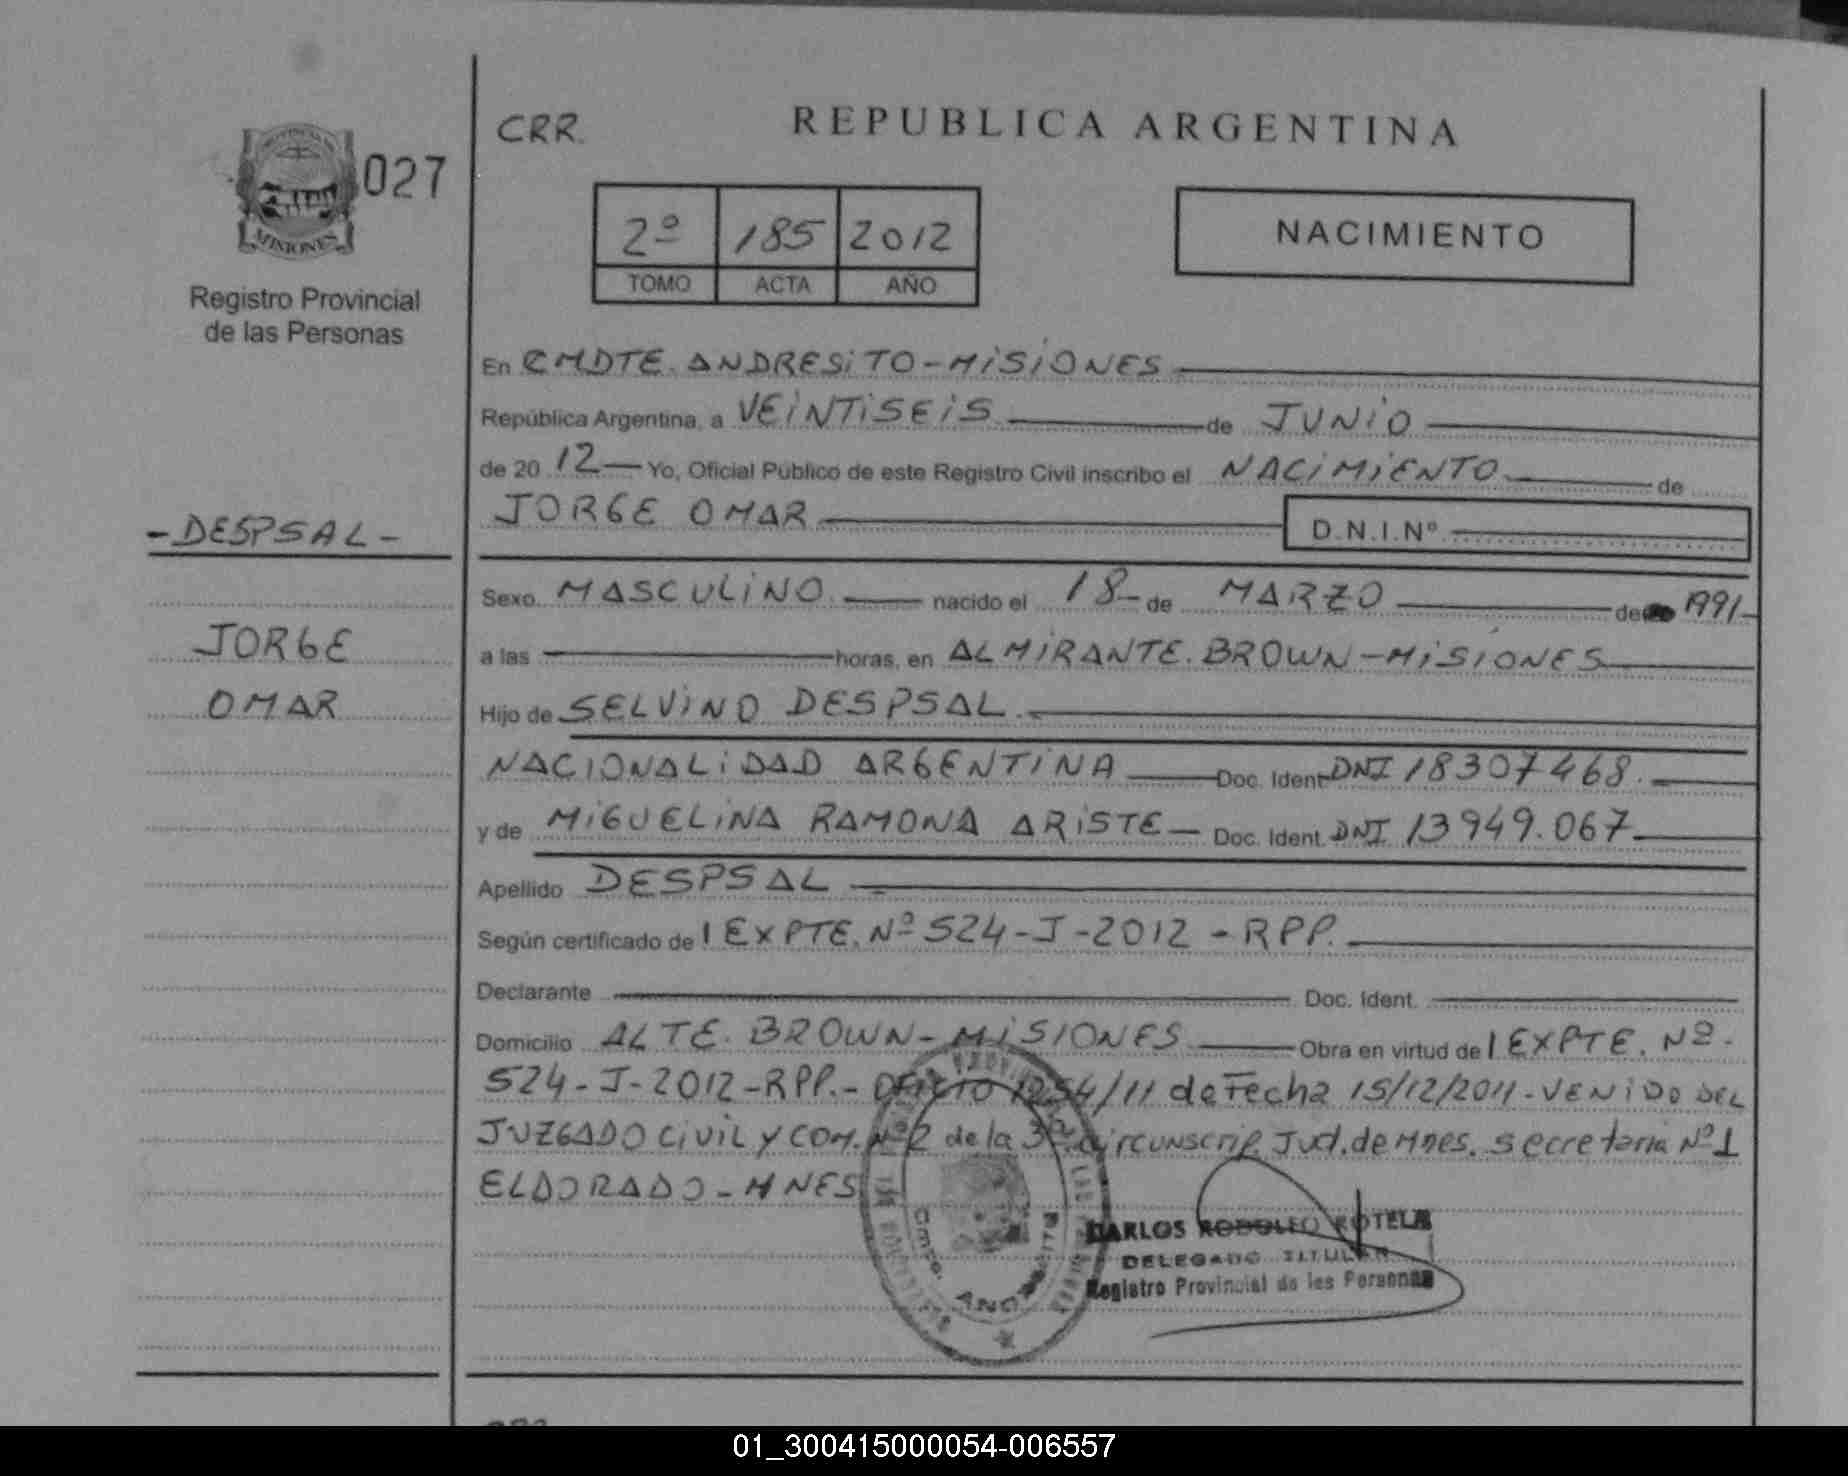 MISIONES
027
Registro Provincial
de las Personas
- DESPSAL -
JORGE
OMAR
CRR.
REPUBLICA ARGENTINA
2º 185 2012
TOMO ACTA AÑO
NACIMIENTO
En CMDTE. ANDRESiTO-MiSiONES
República Argentina, a VEiNTiSEiS de JUNiO
de 20 12 Yo, Oficial Público de este Registro Civil inscribo el NACiMiENTO de
JORGE OMAR D.N.I.Nº
Sexo MASCULiNO. nacido el 18- de MARZO de 1991-
a las horas, en ALMiRANTE. BROWN-MiSiONES
Hijo de SELViNO DESPSAL.
NACIONALiDAD ARGENTiNA Doc. Ident DNI 18307468.
y de MiGUELiNA RAMONA ARiSTE Doc. Ident. DNI 13949.067
Apellido DESPSAL
Según certificado de I EXPTE. Nº 524-J-2012 - RPP.
Declarante Doc. Ident.
Domicilio ALTE. BROWN-MiSIONES Obra en virtud de I EXPTE. Nº-
524-J-2012-RPP.- OFICIO 1254/11 de Fecha 15/12/2011-VENiDO DEL
JUZGADO CiViL Y COM. Nº2 de la 3º circunscrip. Jud. de Mnes. secretaria Nº1
ELDORADO-MNES
ANDRESITO
CARLOS RODOLFO ROTELA
DELEGADO TITULAR
Registro Provincial de las Personas
01_300415000054-006557